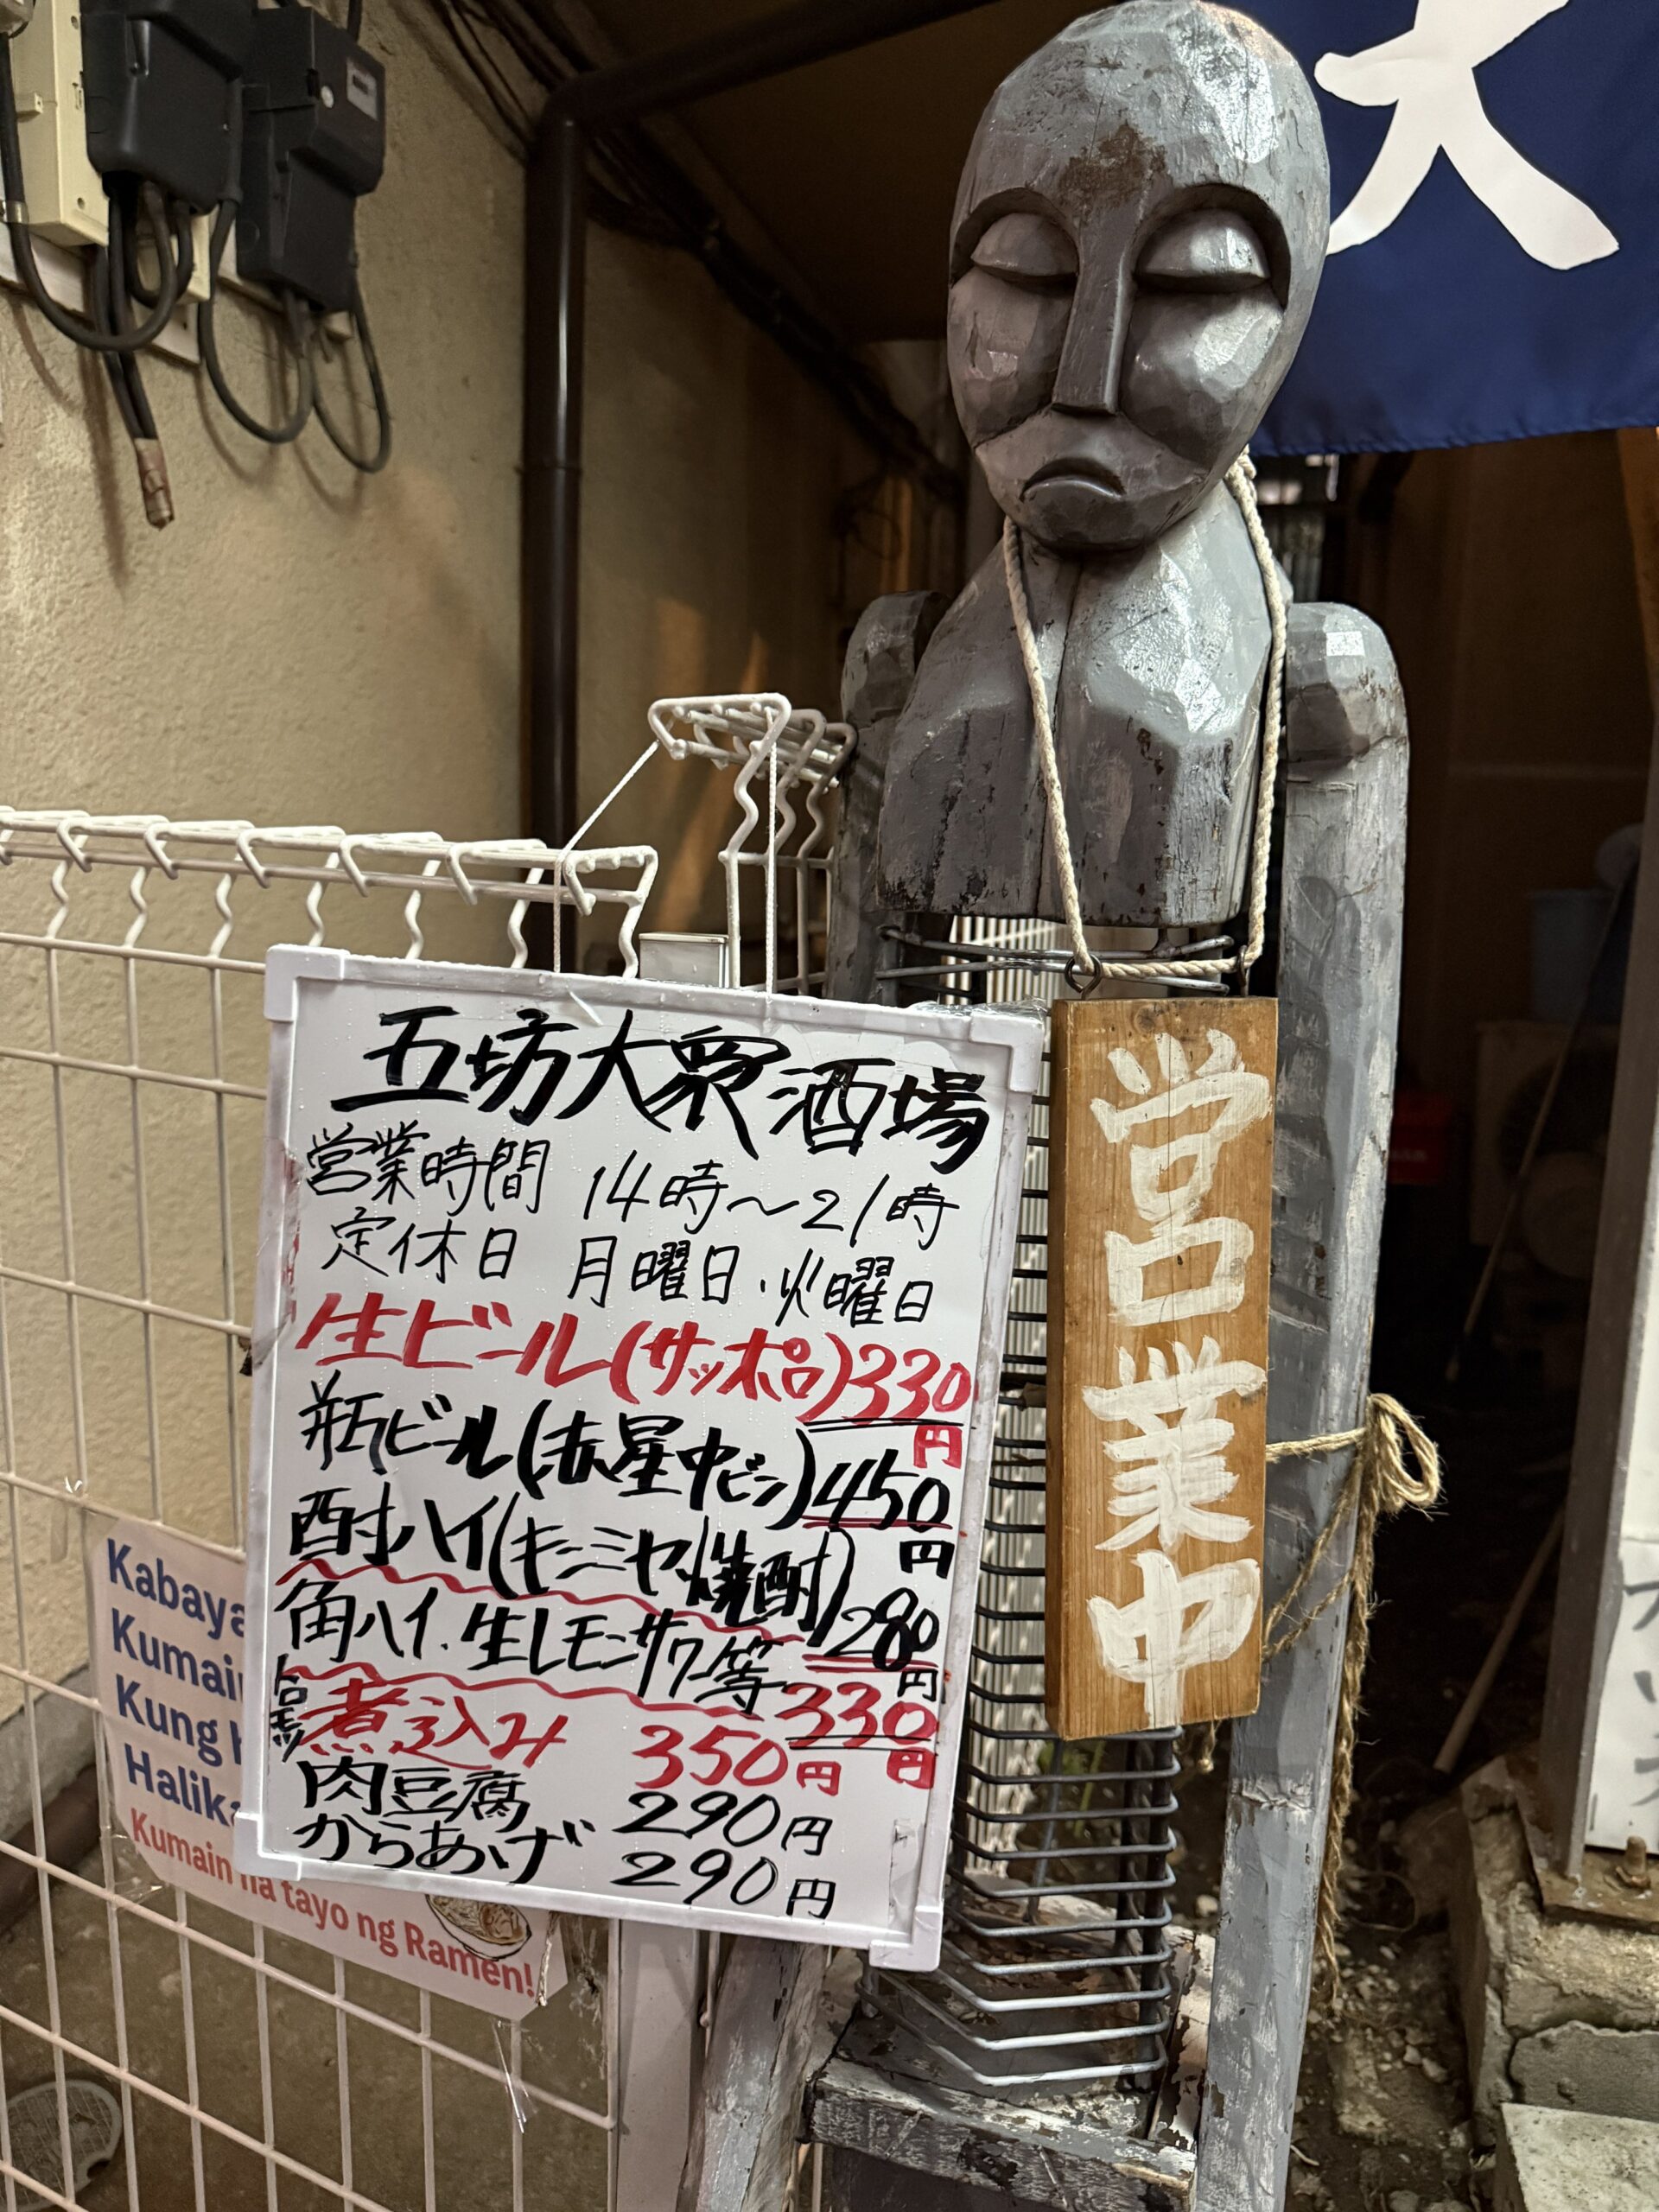 大
五坊大衆酒場
営業時間 14時〜21時
定休日 月曜日・火曜日
生ビール(サッポロ)330円
瓶ビール(赤星中ビン)450円
酎ハイ(キンミヤ焼酎)280円
角ハイ・生レモンサワー等330円
トロモツ煮込み 350円
肉豆腐 290円
からあげ 290円
営業中
Kabaya
Kumain
Kung
Halika
Kumain na tayo ng Ramen!